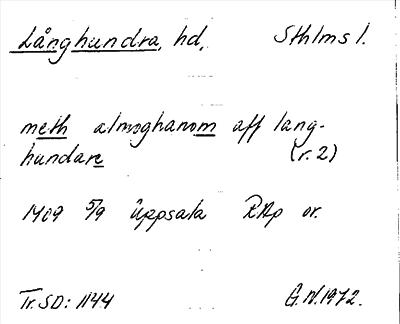 Långhundra, hd, Sthlms l.
meth almoghanom aff lang-
hundare (r. 2)
1409 5/9 Uppsala RAp or.
Tr. SD: 1144 G.N. 1972.